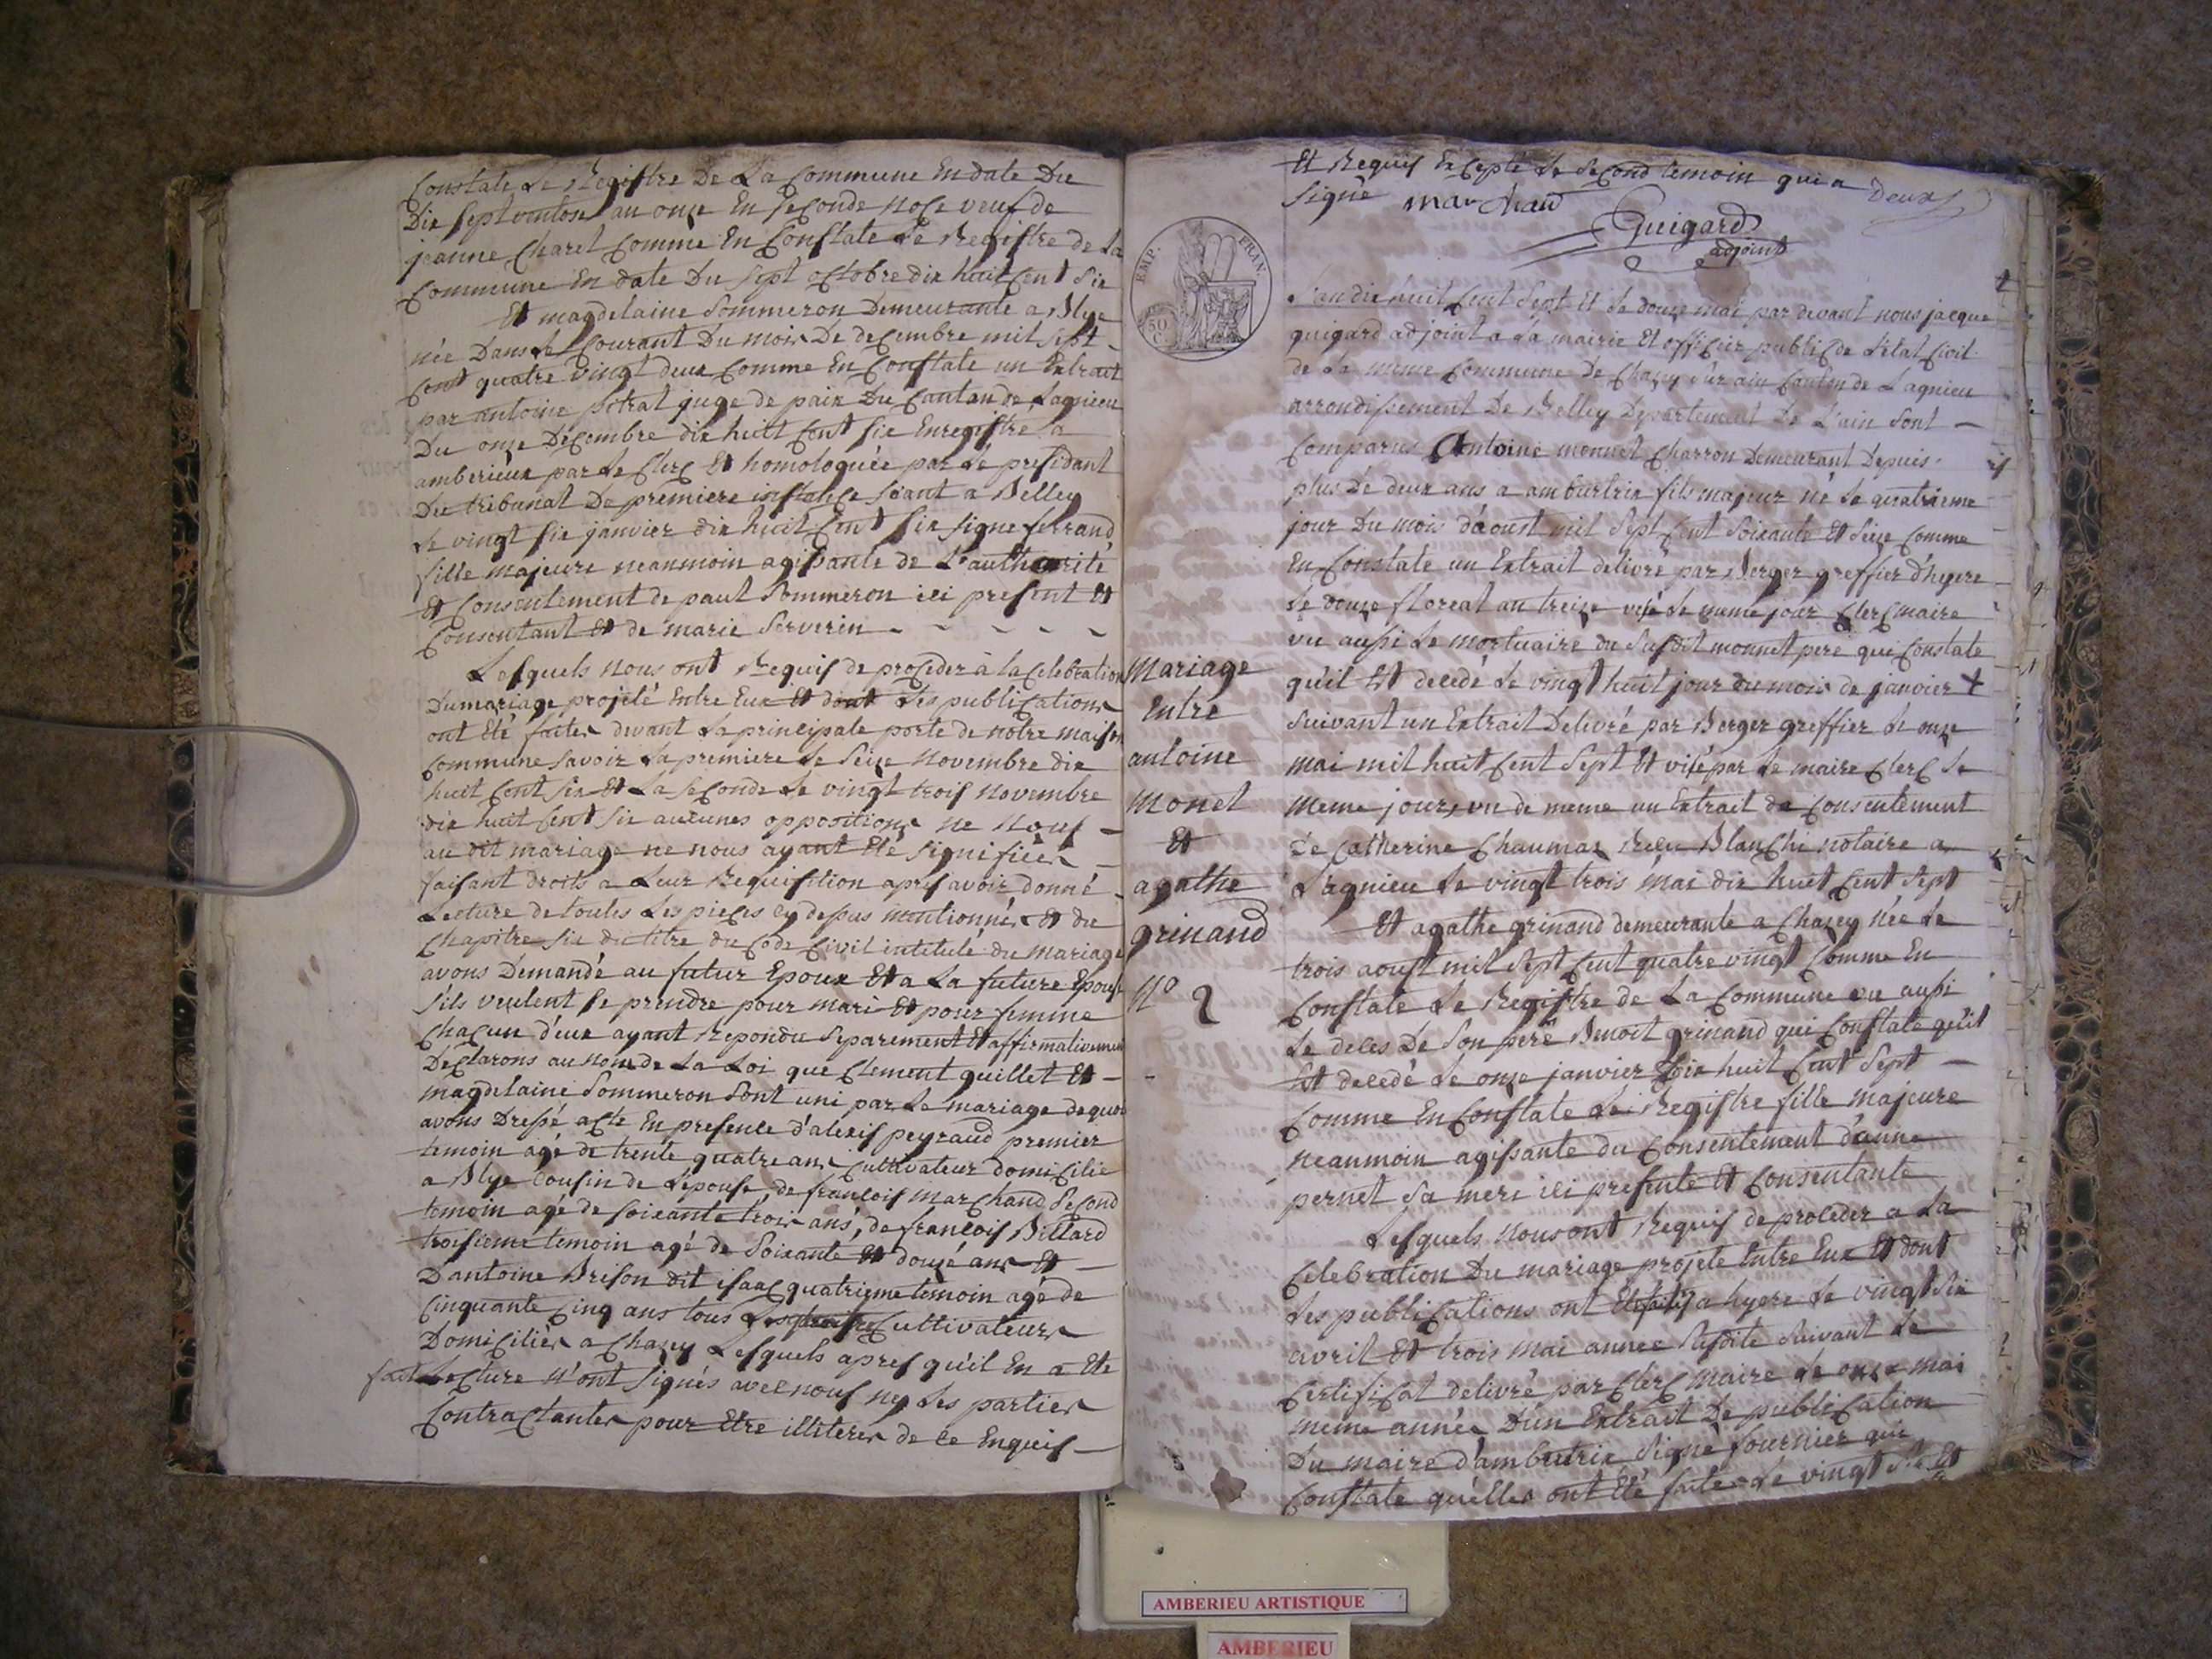 Constate Le Registre De La Commune En date Du
Dix Sept vantose an onze En Seconde noce veuf de
jeanne Charel Comme En Constate Le Registre de La
Commune En date Du Sept octobre dix huit Cent Six
Et magdelaine Sommeron Demeurante a Blye
née Dans Le Courant Du mois De decembre mil Sept
Cent quatre vingt deux Comme En Constate un Extrait
par antoine juge de paix Du Canton de Lagnieu
Du onze Decembre dix huit Cent Six Enregistré a
amberieux par Le Clerc Et homologuée par Le presidant
Du tribunal De premiere instance Séant a Belley
Le vingt Six janvier dix huit Cent Six Signe ferrand
fille majeure neanmoin agissante de L'authorité
Et Consentement de paul Sommeron ici present Et
Consentant Et de marie Serverin
Lesquels nous ont Requis de proceder à la Celebration
Du mariage projeté Entre Eux Et dont Les publications
ont Eté faites devant La principale porte de notre maison
Commune Savoir La premiere Le Seize Novembre dix
huit Cent Six Et La Seconde Le vingt trois Novembre
dix huit Cent Six aucunes oppositions ne nous
au dit mariage ne nous ayant Eté Signifiées
faisant droits a Leur Requisition apres avoir donné
Lecture de toutes Les pieces cy dessus mentionnées Et du
Chapitre Six du titre du Code Civil intitulé du mariage
avons Demandé au futur Epoux Et a La future Epouse
S'ils veulent Se prendre pour mari Et pour femme
Chacun d'eux ayant Repondu Separement Et affirmativement
Declarons au nom de La Loi que Clement guillet Et
magdelaine Sommeron Sont uni par Le mariage de quoi
avons Dressé acte En presence d'alexis peyraud premier
temoin agé de trente quatre ans Cultivateur domicilié
a Blye Cousin de L'epouse, de francois marchand Second
temoin agé de soixante trois ans, de francois Billard
troisieme temoin agé de Soixante Et douze ans Et
D'antoine Brison dit isaac quatrieme temoin agé de
Cinquante Cinq ans tous Les quatre Cultivateurs
Domiciliés a Chazey Lesquels apres qu'il En a Ete
fait Lecture n'ont Signés avec nous ny Les parties
Contractantes pour Etre illiteres de ce Enquis
Et Requis Excepté Le Second temoin qui a
Signé marchand
Deux
Guigard
adjoint
EMP. FRAN.
50
C.
L'an dix huit Cent Sept Et Le douze mai par devant nous jacque
guigard adjoint a La mairie Et officier public de L'etat Civil
de La meme Commune De Chazey Sur ain Canton de Lagnieu
arrondissement De Belley Departement De L'ain Sont
Comparus Antoine monnet Charron Demeurant Depuis
plus de deux ans a ambutrix fils majeur né Le quatrieme
jour Du mois d'aoust mil Sept Cent Soixante Et Seize Comme
En Constate un Extrait delivré par Berger greffier d'hyere
Le douze floreal an treize visé Le meme jour Clerc maire
vu aussi Le mortuaire du Susdit monnet pere qui Constate
qu'il Est decedé Le vingt huit jour du mois de janvier +
Suivant un Extrait Delivré par Berger greffier Le onze
mai mil huit Cent Sept Et visé par Le maire Clerc Le
meme jour, vu de meme un Extrait de Consentement
de Catherine Chaumar Blanchi notaire a
Lagnieu Le vingt trois mai dix huit Cent Sept
Et agathe grinand demeurante a Chazey née Le
trois aoust mil Sept Cent quatre vingt Comme En
Constate Le Registre de La Commune vu aussi
Le deces De Son pere Benoit grinand qui Constate qu'il
Est decedé Le onze janvier dix huit Cent Sept
Comme En Constate Le Registre fille majeure
neanmoin agissante du Consentement d'anne
pernet Sa mere ici presente Et Consentante
Lesquels nous ont Requis de proceder a La
Celebration Du mariage projeté Entre Eux Et dont
Les publications ont Eté faites a hyere Le vingt Six
avril Et trois mai annee Susdite Suivant Le
Certificat delivré par Clerc maire Le onze mai
meme année D'un Extrait De publication
Du maire d'ambutrix Signé fournier qui
Constate qu'elles ont Eté faites Le vingt Six Et
Mariage
Entre
antoine
Monet
Et
agathe
grinand
N° 2
AMBERIEU ARTISTIQUE
AMBERIEU